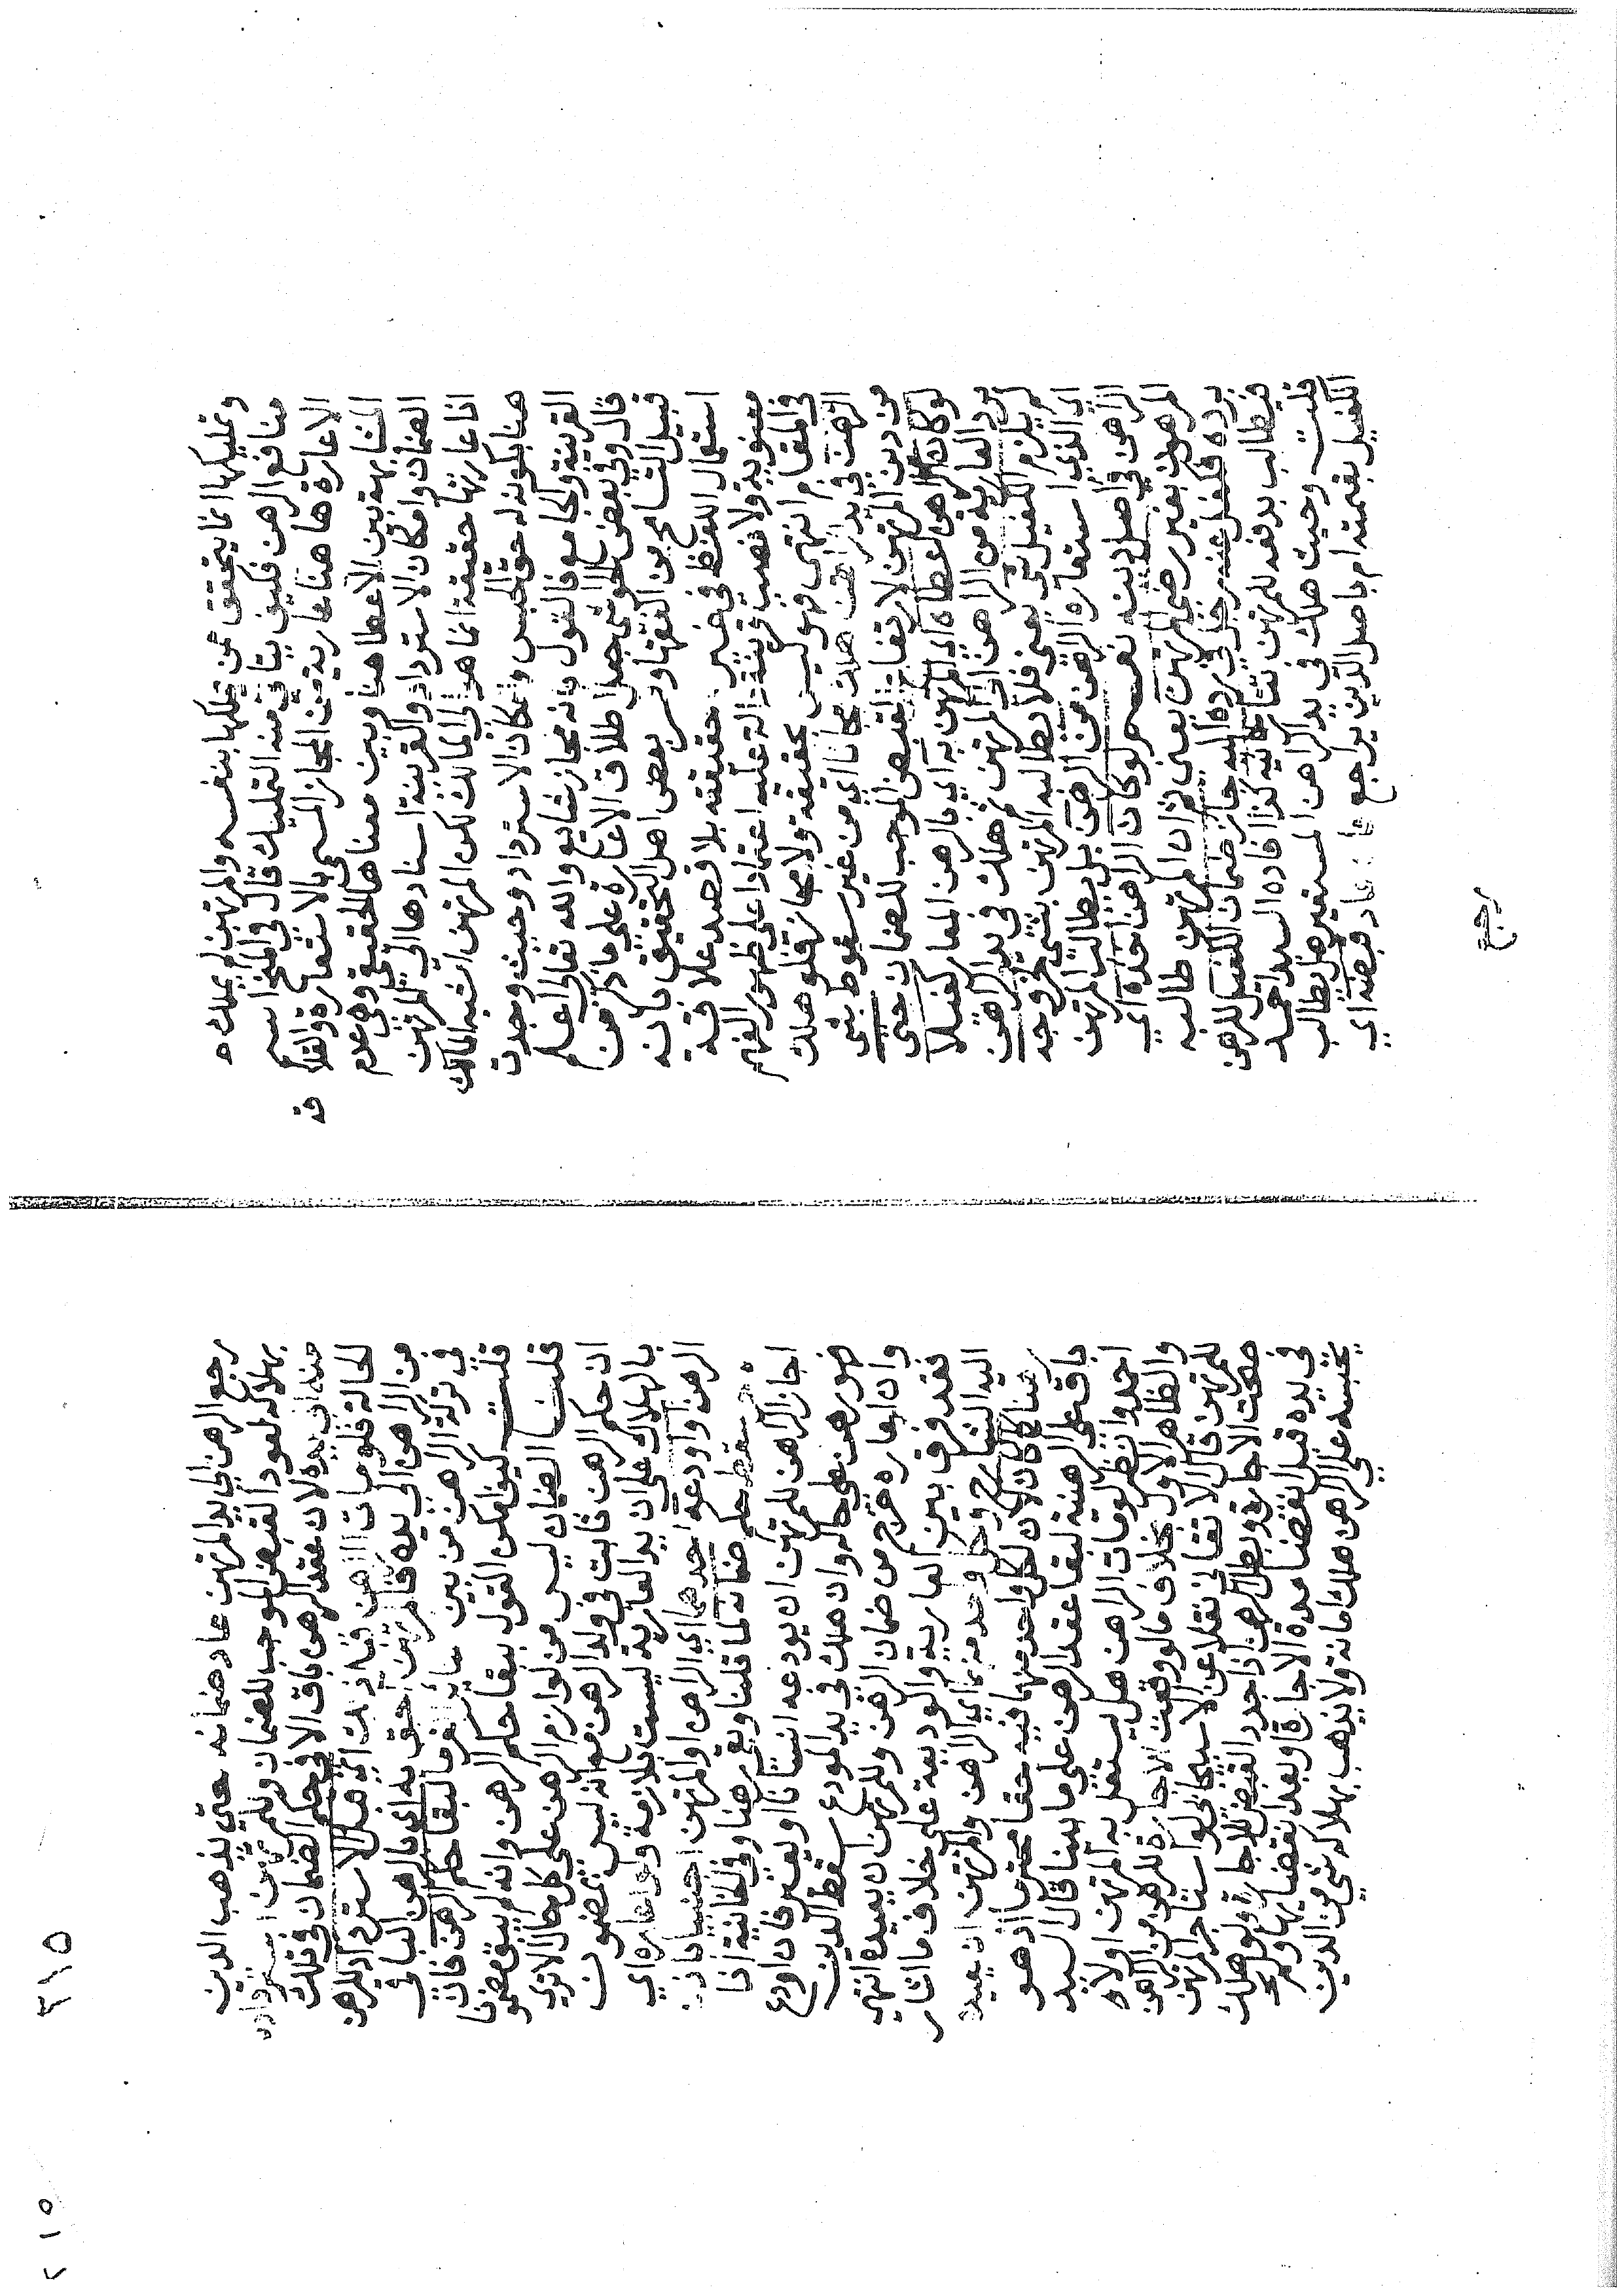 وتمليكها انما يتحقق ممن يملكها بنفسه والمرتهن لم يملك
منافع الرهن فكيف يتاتي منه التمليك قال في المنح اسم
الاعارة هاهنا عارية من المجاز المسمى بالاستعارة والعلاقة
المشابهة بين الاعطا هنا وبين معناها الحقيقي وهو عدم
الضمان وامكان الاسترداد والقرينة اسنادها الي المرتهن
اذ اعارتها حقيقة انما هو الي المالك لكن المرتهن اشبه المالك
هنا بكونه له حق الحبس وامكان الاسترداد وحينئذ وجدت
القرينة والجامع فالقول بانه مجاز شايع والله تعالى اعلم
قال وفي بعض الحواشي جعل اطلاق الاعارة على ما ذكر من
قبيل التسامح من الفقها وفسر بعض اهل التحقيق بانه
استعمال اللفظ في غير حقيقته بلا قصد علاقة
معنوية ولا نصب قرينة دالة عليه اعتمادا على ظهور الفهم
في المقام انتهى فهو ليس بحقيقة ولا مجاز فلو هلك
الرهن في يد الراهن هلك مجانا اي من غير سقوط شي
من دين المرتهن لارتفاع القبض الموجب للضمان حتى
لو كان الراهن اعطاه اي المرتهن به اي بالرهن المعار كفيلا
برد العارية من الراهن الى المرتهن ثم هلك في يد الراهن
لم يلزم الكفيل شي يعني فلا يطالبه المرتهن بشي لخروجه
اي الذي استعاره الراهن من الرهن بل يطالب المرتهن
الراهن في اصل دينه نعم لو كان الراهن اخذه اي
المرهون بغير رضى المرتهن يعني ثم ان المرتهن طالبه
برده فكفل عنه رجل في رده اليه جاز ضمان الكفيل للرهن
فيطالب بدفعه للمرتهن تتارخانيه كذا افاده السيد احمد
قلت وحيث هلك في يد الراهن المستعير هل يطالب
الكفيل بقيمته ام باصل الدين يراجع فان عاد قبضه اي
رجع
رجع الرهن الي يد المرتهن عاد ضمانه حتي يذهب الدين
بهلاكه لعود القبض الموجب للضمان وللمرتهن استرداده
منه الي يده لان عقد الرهن باق الا في حكم الضمان في تلك
الحالة فلو مات الراهن قبل ذلك اي قبل الاسترداد للرهن
من الراهن الي يده فالمرتهن احق به اي بالرهن الباقي
في تركة الراهن من بين ساير الغرما لبقا حكم الرهن فان
قلت كيف امكن القول ببقا حكم الرهن وانه لم يبق مضمونا
قلنا الضمان ليس من لوازم الرهن على كل حال الا تري
ان حكم الرهن ثابت في ولد الرهن مع انه ليس بمضمون
بالهلاك على ان يد العارية ليست بلازمة ولو اعاره اي
الرهن او اودعه احدهما اي الراهن او المرتهن اجنبيا باذن
الاخر سقط حكم ضمانه لما قلنا وبقي رهنا وفي الخانية اذا
اجاز الراهن للمرتهن ان يودعه انسانا او يعير فان اودع
فهو رهن على حاله وان هلك في يد المودع سقط الدين
وان اعاره خرج من ضمان الرهن وللمرتهن ان يعيده انتهى
فقد فرق بين العارية والوديعة على خلاف ما اشار
اليه الشارح ولكل واحد منهما اي الراهن والمرتهن ان يعيده
رهنا كما كان لان لكل واحد منهما فيه حقا محترما اذ هو
باق على الرهنية لبقا عقد الرهن على ما بينا قال السيد
احمد وانظر لو مات الراهن هل يستقل به المرتهن اولا
والظاهر الاول بخلاف ما لو وقعت الاجارة للرهن من الراهن
للمرتهن قال الاتقاني نقلا عن الاسبيجابي لو استاجر المرتهن
صحت الاجارة وبطل الرهن اذا جدد القبض للاجارة ولو هلك
في يده قبل انقضا مدة الاجارة او بعد انقضايها ولم
يحبسه على الراهن هلك امانة ولا يذهب بهلاكه شي من الدين
٣١٥